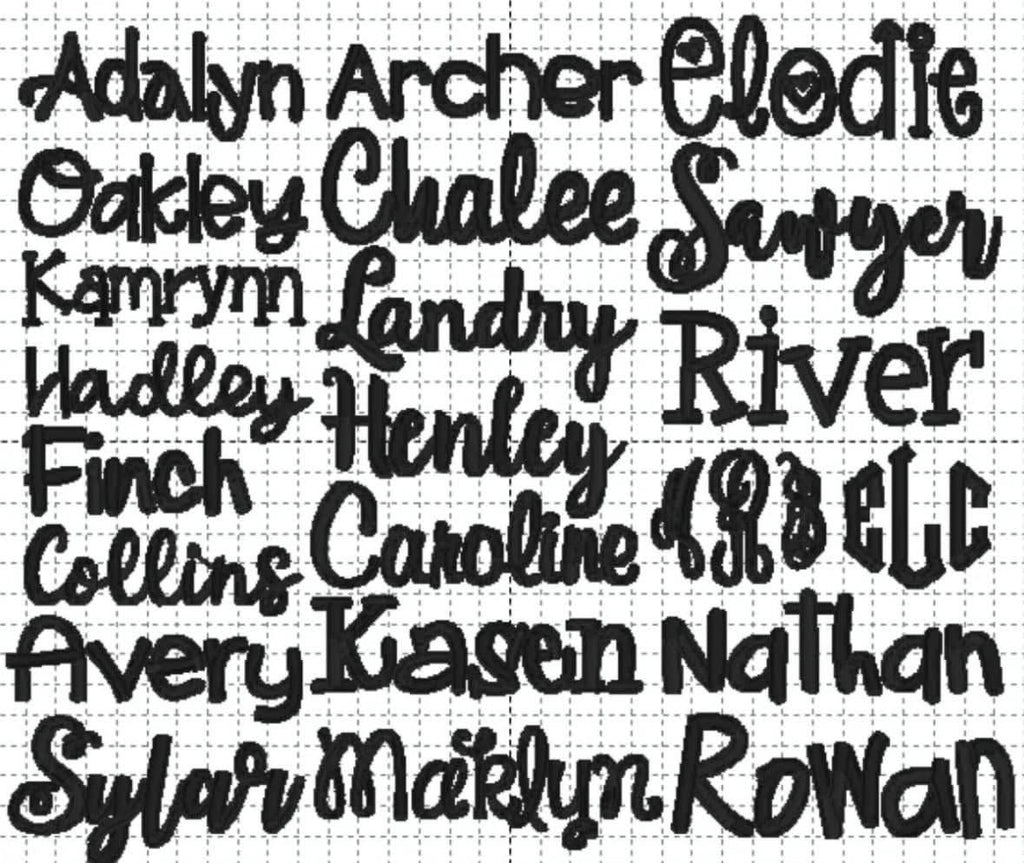 Adalyn
Oakley
Kamrynn
Hadley
Finch
Collins
Avery
Sylar
Archer
Chalee
Landry
Henley
Caroline
Kasen
Elodie
Sawyer
River
eLC
Nathan
Rowan